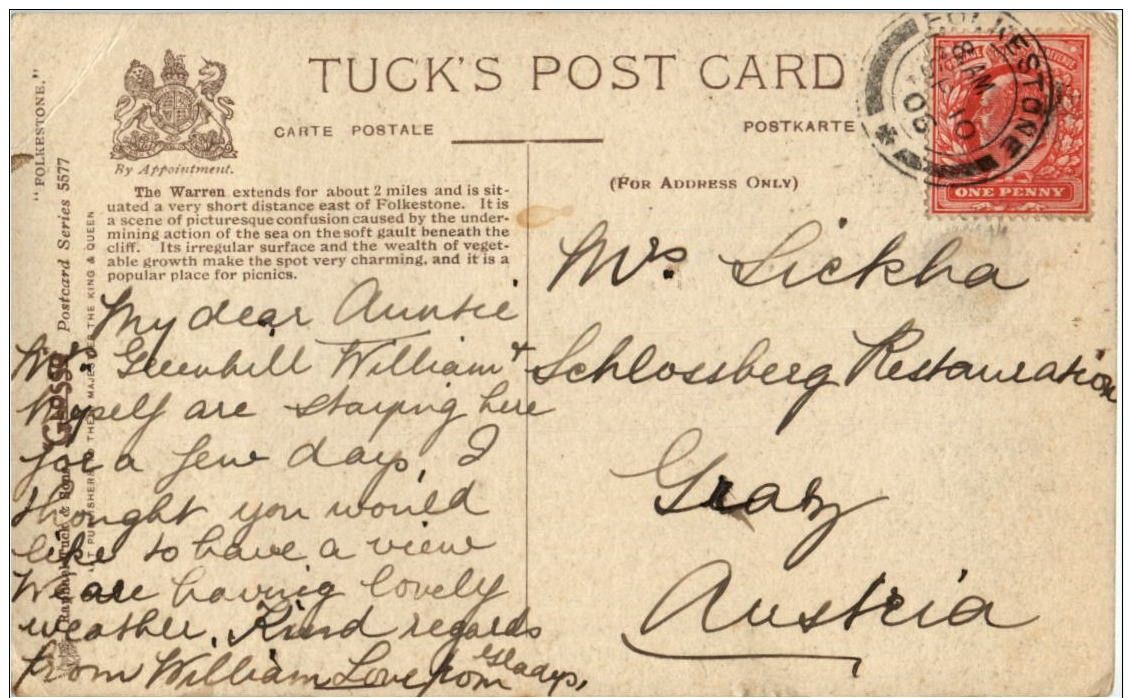 TUCK'S POST CARD
CARTE POSTALE
POSTKARTE
By Appointment.
(FOR ADDRESS ONLY)
The Warren extends for about 2 miles and is sit-
uated a very short distance east of Folkestone. It is
a scene of picturesque confusion caused by the under-
mining action of the sea on the soft gault beneath the
cliff. Its irregular surface and the wealth of veget-
able growth make the spot very charming, and it is a
popular place for picnics.
My dear Auntie
Mr. Greenhill William +
Myself are staying here
for a few days, I
thought you would
like to have a view
We are having lovely
weather. Kind regards
from William Love from Gladys.
Mrs. Lickha
Schlossberg Restauration
Graz
Austria
FOLKESTONE
8 AM
10
ONE PENNY
"FOLKESTONE."
Postcard Series 5577
GLOSSO
Raphael Tuck & Sons
ART PUBLISHERS TO THEIR MAJESTIES THE KING & QUEEN